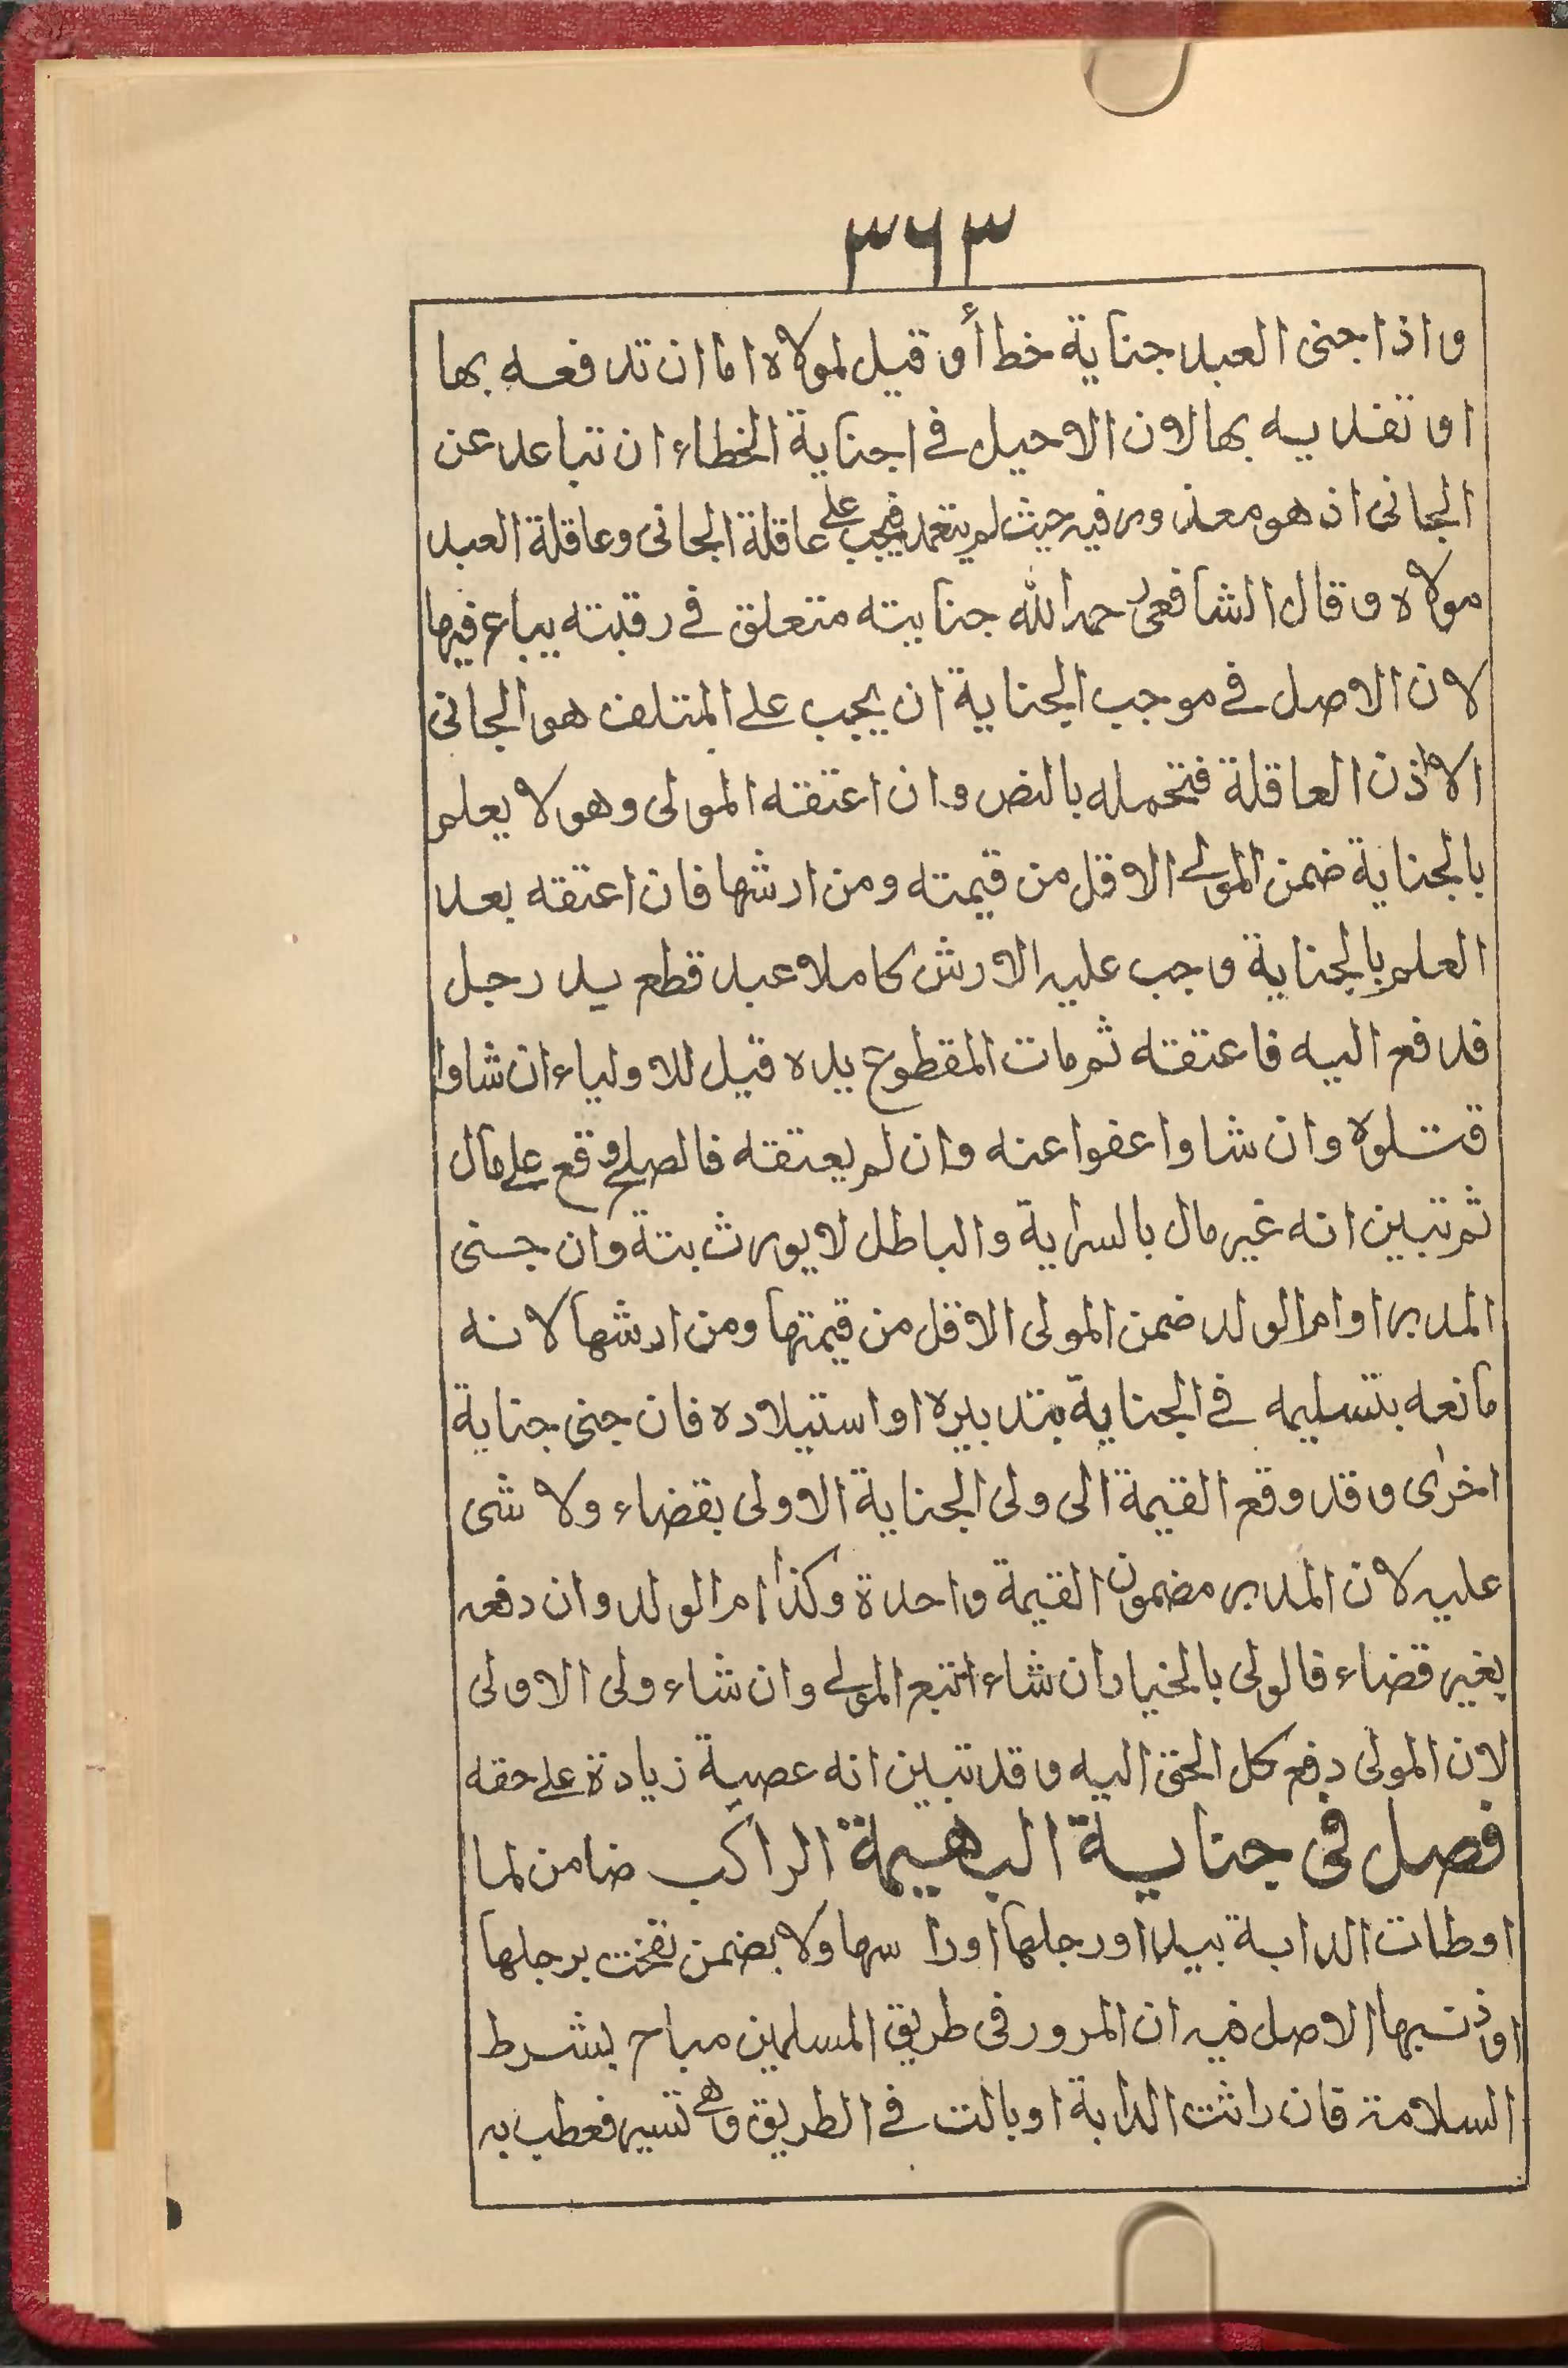 ٣٦٣
واذا جنى العبد جناية خطأ وقيل لمولاه اما ان تدفعه بها
او تفديه بها لان الاحيل في اجناية الخطاء ان تباعد عن
الجانى ان هو معذور فيه حيث لم يتعمد فيجب على عاقلة الجانى وعاقلة العبد
مولاه وقال الشافعى رحمه الله جنايته متعلق في رقبته يباع فيها
لان الاصل في موجب الجناية ان يجب على المتلف هو الجانى
الا اذن العاقلة فتحمله بالنص وان اعتقه المولى وهو لا يعلم
بالجناية ضمن المولى الاقل من قيمته ومن ارشها فان اعتقه بعد
العلم بالجناية وجب عليه الارش كاملا عبد قطع يد رجل
فدفع اليه فاعتقه ثم مات المقطوع يده قيل للاولياء ان شاوا
قتلوه وان شاوا عفوا عنه وان لم يعتقه فالصلح وقع على مال
ثم تبين انه غير مال بالسراية والباطل لا يورث بتة وان جنى
المدبر او ام الولد ضمن المولى الاقل من قيمتها ومن ارشها لانه
مانعه بتسليمه في الجناية بتدبيره او استيلاده فان جنى جناية
اخرى وقد وقع القيمة الى ولى الجناية الاولى بقضاء ولا شى
عليه لان المدبر مضمون القيمة واحدة وكذا ام الولد وان دفعه
بغير قضاء فالولى بالخيار ان شاء اتبع المولى وان شاء ولى الاولى
لان المولى دفع كل الحق اليه وقد تبين انه عصبة زيادة على حقه
فصل في جناية البهيمة الراكب ضامن لما
اوطات الدابة بيدا او رجلها او را سها ولا يضمن نفخت برجلها
او ذنبها الاصل فيه ان المرور فى طريق المسلمين مباح بشرط
السلامة فان راثت الدابة او بالت في الطريق وهى تسير فعطب به